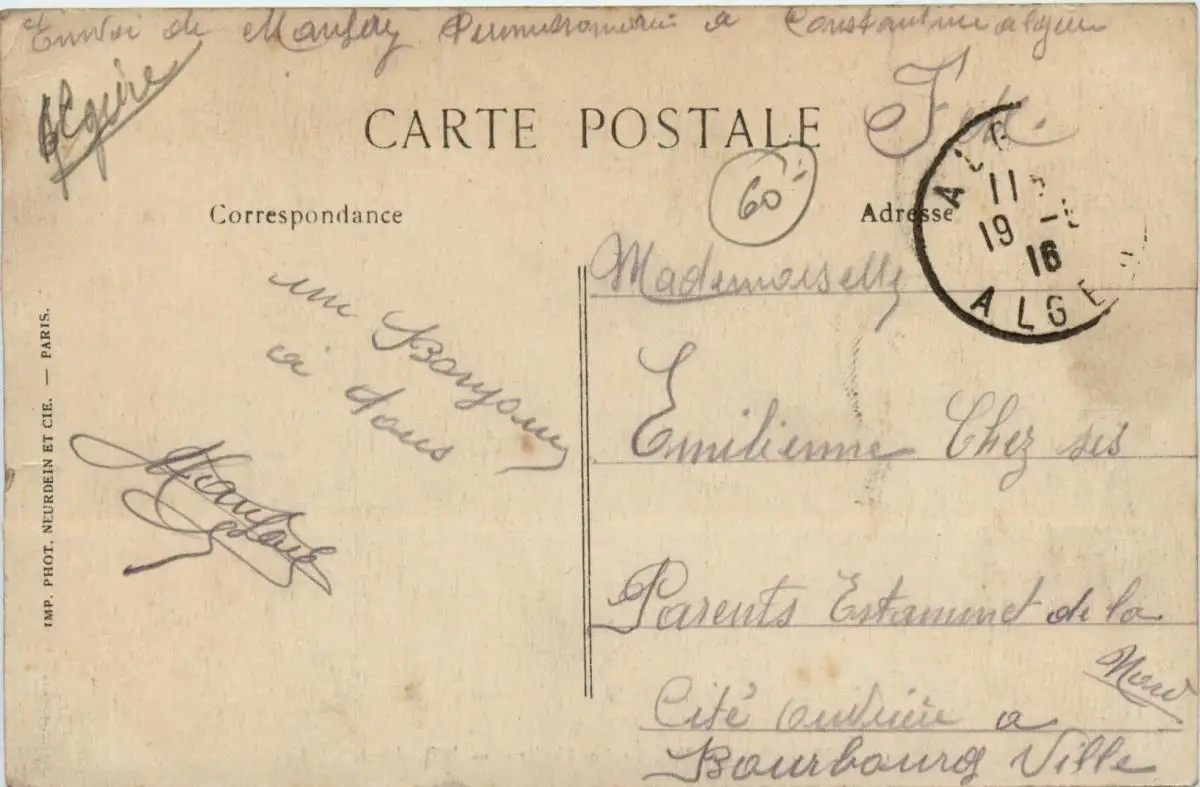 Envoi de Permissionnaire a Constantine algerie
Algérie
F.M.
CARTE POSTALE
60
Correspondance
Adresse
11
19 -
16
ALGER
un Bonjour
a tous
Mademoiselle
Emilienne Chez ses
Parents Estaminet de la
Cité ouvrière a
Nord
Bourbourg Ville
IMP. PHOT. NEURDEIN ET CIE. — PARIS.